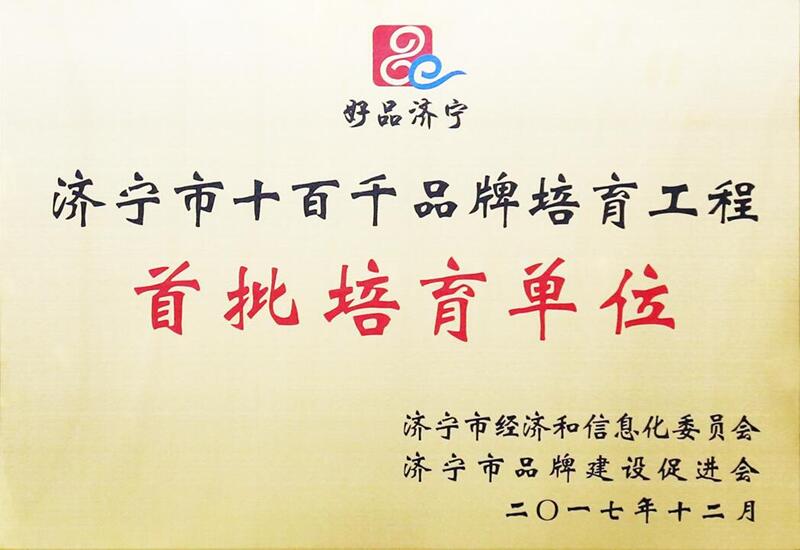 好品济宁
济宁市十百千品牌培育工程
首批培育单位
济宁市经济和信息化委员会
济宁市品牌建设促进会
二〇一七年十二月